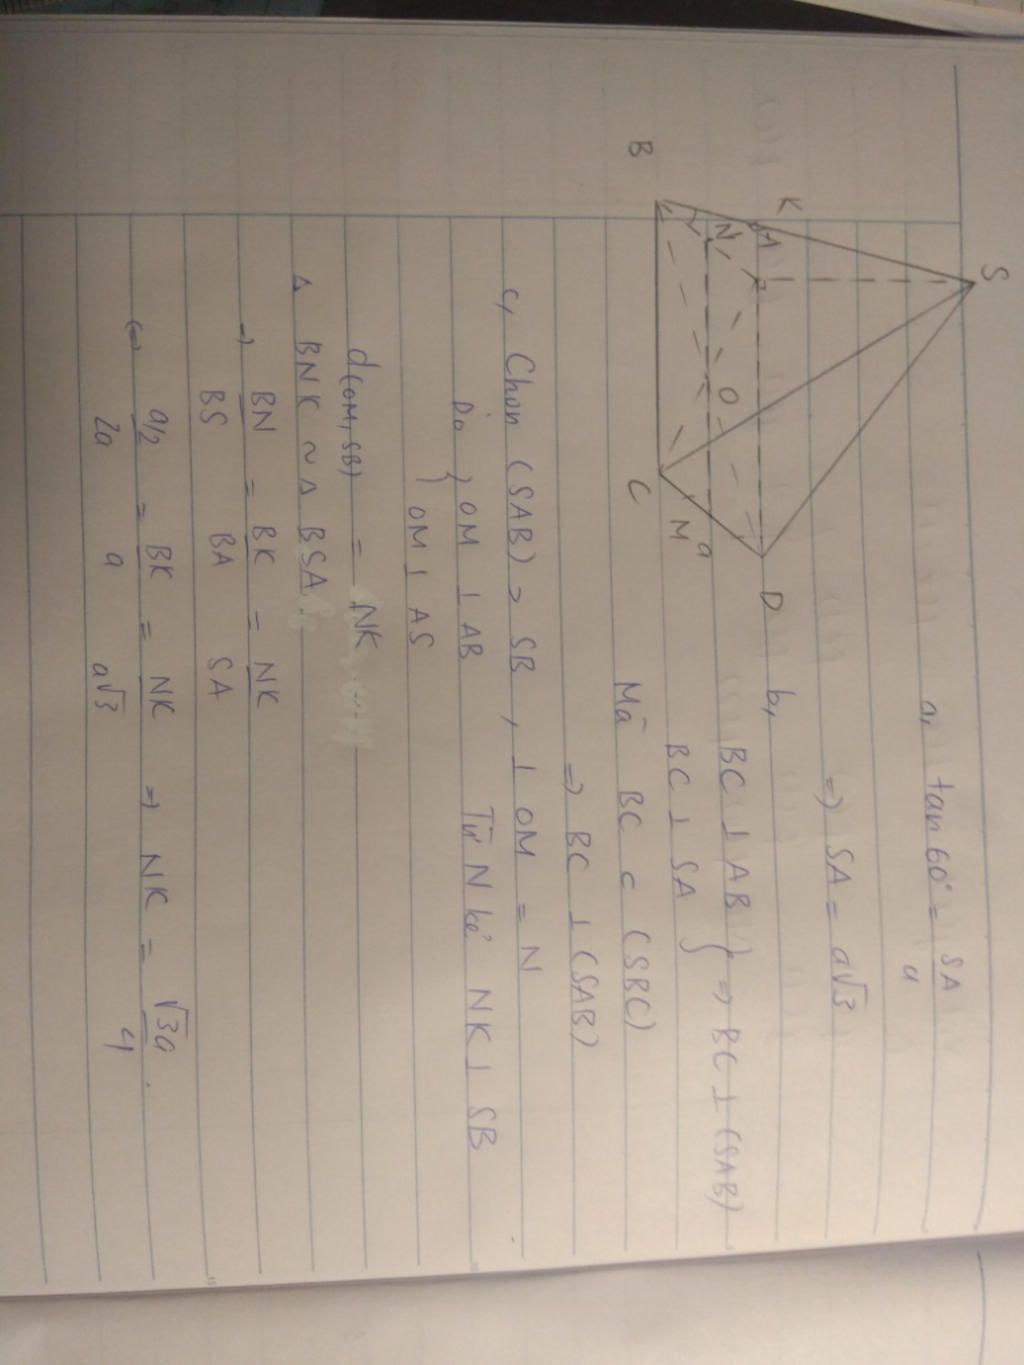 S
K
A
N
O
B
C
M
a
D
a, tan 60° = SA/a
=> SA = a√3
b,
BC ⊥ AB } => BC ⊥ (SAB)
BC ⊥ SA
Mà BC ⊂ (SBC)
=> BC ⊥ (SAB)
c, Chọn (SAB) > SB, ⊥ OM = N
Do } OM ⊥ AB Từ N kẻ NK ⊥ SB
} OM ⊥ AS
d(OM, SB) = NK
Δ BNK ~ Δ BSA.
=> BN/BS = BK/BA = NK/SA
(=) a/2/2a = BK/a = NK/a√3 => NK = √3a/4.